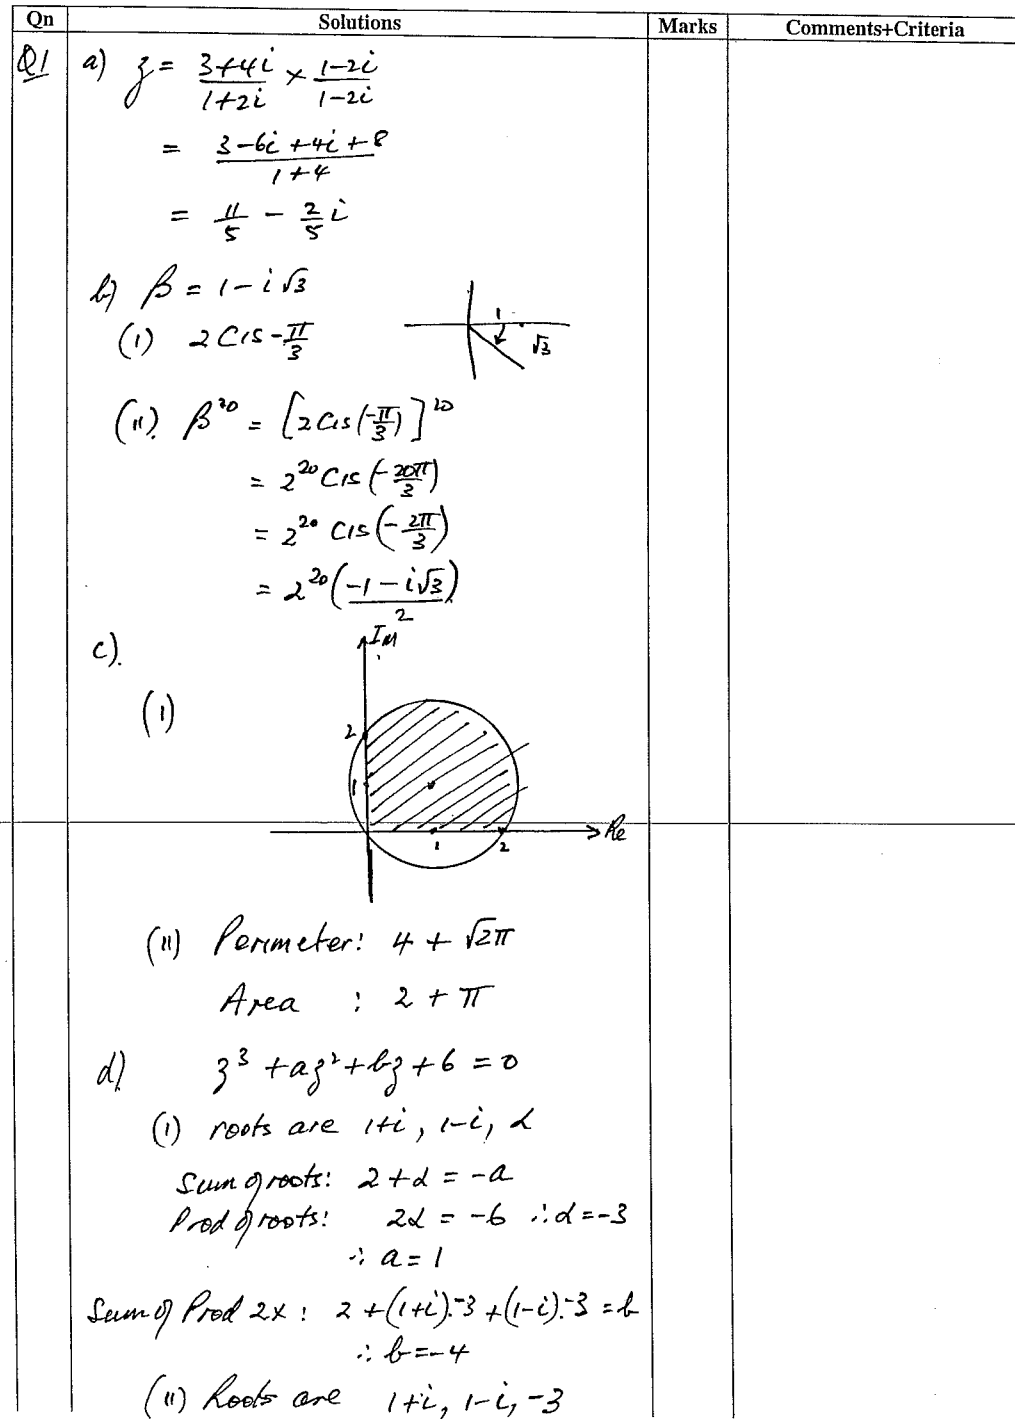 Qn Solutions Marks Comments+Criteria
Q1 a) z = (3+4i)/(1+2i) × (1-2i)/(1-2i)
= (3-6i+4i+8)/(1+4)
= 11/5 - 2/5 i
b) β = 1-i√3
(i) 2 Cis -π/3
1
√3
(ii). β^20 = [2 Cis(-π/3)]^20
= 2^20 Cis(-20π/3)
= 2^20 Cis(-2π/3)
= 2^20 ((-1-i√3)/2)
c).
Im
(i)
2
1
Re
1 2
(ii) Perimeter: 4 + √2π
Area : 2 + π
d) z³ + az² + bz + 6 = 0
(i) roots are 1+i, 1-i, α
Sum of roots: 2+α = -a
Prod of roots: 2α = -6 ∴ α = -3
∴ a = 1
Sum of Prod 2x : 2 + (1+i).-3 + (1-i).-3 = b
∴ b = -4
(ii) Roots are 1+i, 1-i, -3